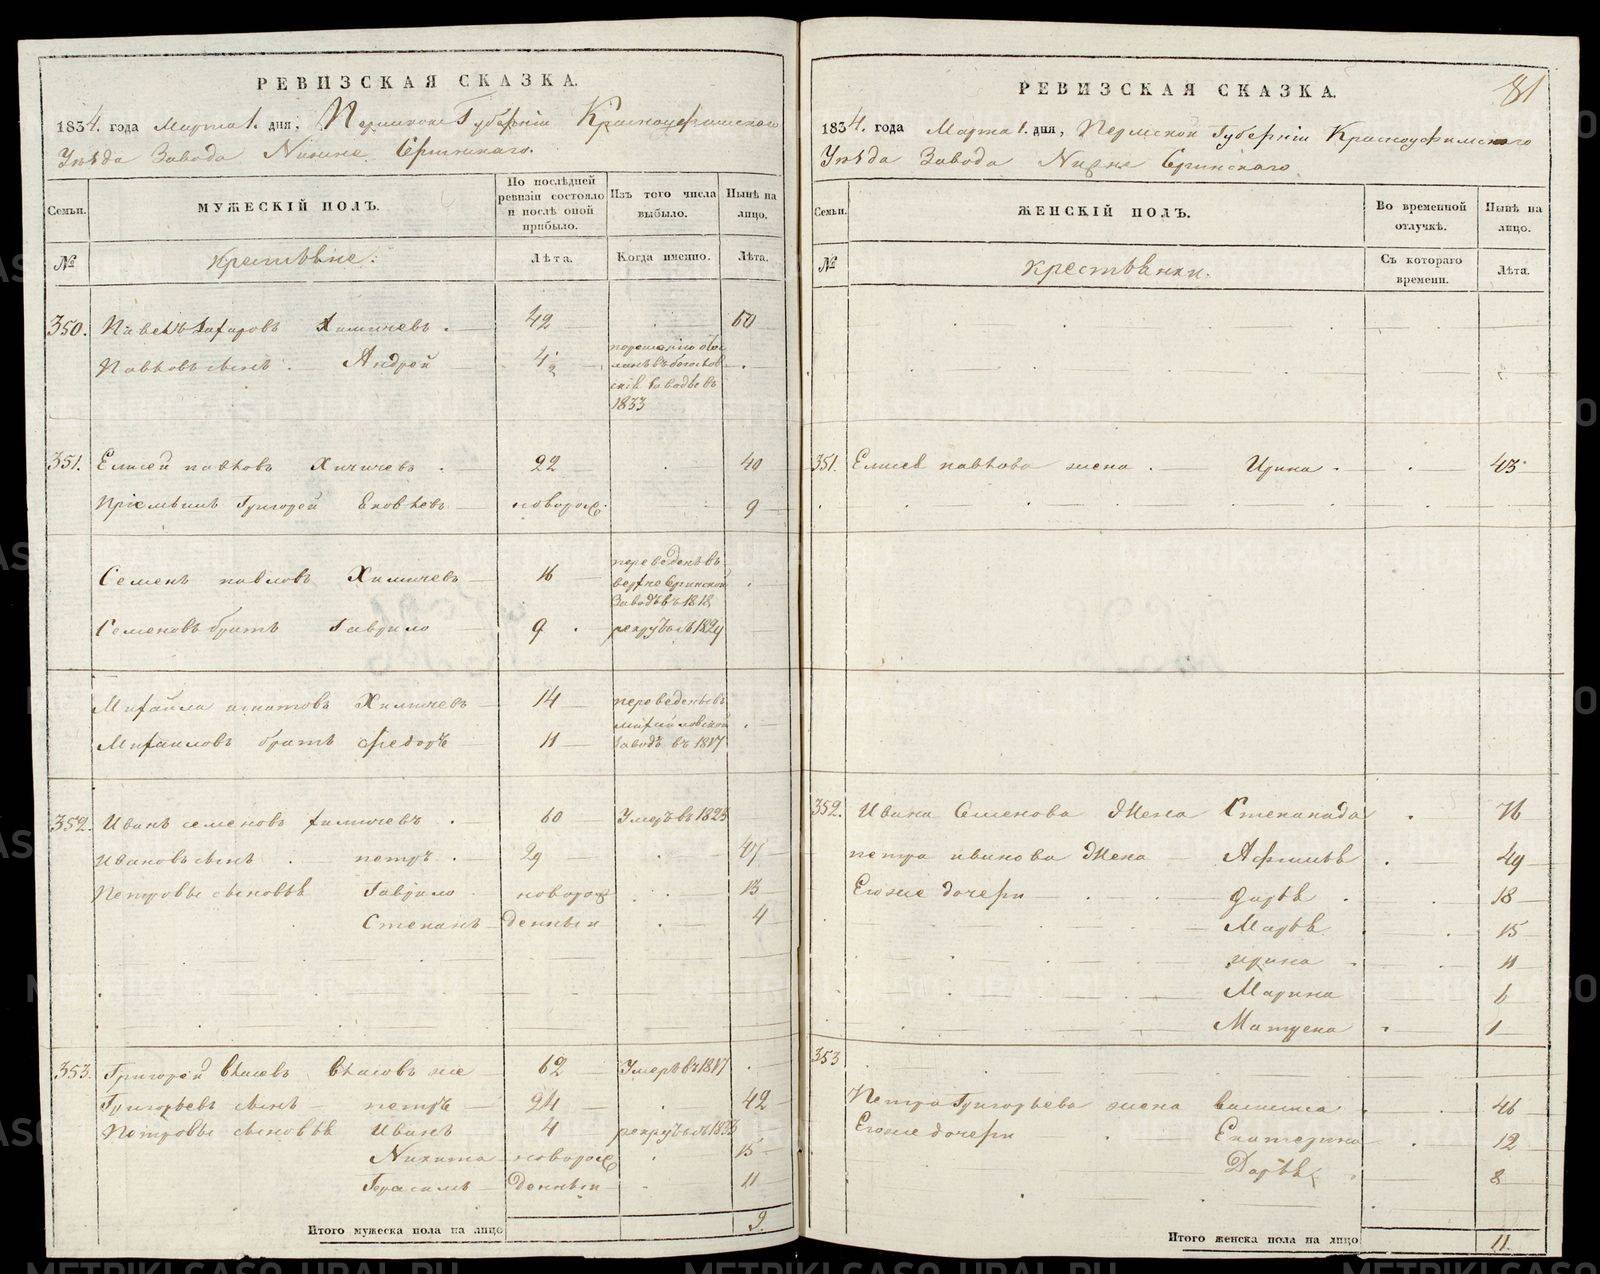 РЕВИЗСКАЯ СКАЗКА.
1834. года Марта 1. дня, Пермской Губерніи Красноуфимскаго
Уѣзда Завода Нижне Сергинскаго.
Семьи.
МУЖЕСКІЙ ПОЛЪ.
По послѣдней ревизіи состояло и послѣ оной прибыло.
Изъ того числа выбыло.
Нынѣ на лицо.
№
Крестьяне.
Лѣта.
Когда именно.
Лѣта.
350. Павелъ Химичевъ. 42 50
Павловъ сынъ Андрей 4½
Заводъ въ
1833
351. Елисей павловъ Химичевъ 22 40
Пріемышъ Григорей Яковлевъ новорож 9
Семенъ павловъ Химичевъ 16 переведенъ въ
верхне Сергинской
Заводъ въ 1818
Семеновъ братъ Гаврило 9 рекрутъ въ 1829
Михайла игнатовъ Химичевъ 14 переведены въ
михайловской
Михаиловъ братъ Федоръ 11 Заводъ въ 1817
352. Иванъ семеновъ Химичевъ 60 Умеръ въ 1825
Ивановъ сынъ петръ 29 47
Петровы сыновья Гаврило новорож 13
Степанъ денныи 4
353. Григорей 62 Умеръ въ 1817
Григорьевъ сынъ петръ 24 42
Петровы сыновья Иванъ 4 рекрутъ въ 1833
Никита новорож 15
Герасимъ денныи 11
Итого мужеска пола на лицо 9.
81
РЕВИЗСКАЯ СКАЗКА.
1834. года Марта 1. дня, Пермской Губерніи Красноуфимскаго
Уѣзда Завода Нижне Сергинскаго.
Семьи.
ЖЕНСКІЙ ПОЛЪ.
Во временной отлучкѣ.
Нынѣ на лицо.
№
Крестьянки.
Съ котораго времени.
Лѣта.
351. Елисея павлова жена Ирина 43
352. Ивана Семенова Жена Степанида 76
петра иванова Жена Афимья 49
Егоже дочери Дарья 18
Марья 15
ирина 11
Марина 6
Матрена 1
353
Петра Григорьева жена василиса 46
Егоже дочери Екатерина 12
Дарья 8
Итого женска пола на лицо 11.